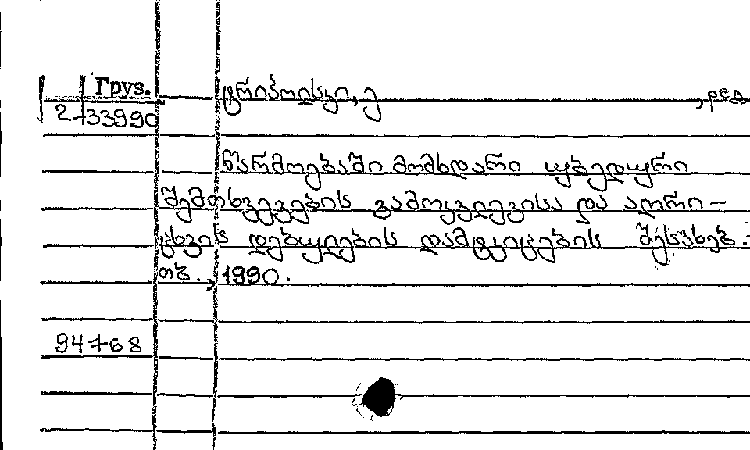 Груз.
2-33990
ტროიანოვსკი, ე , ред
წარმოებაში მომხდარი უბედური
შემთხვევების გამოკვლევისა და აღრი-
ცხვის დებულების დამტკიცების შესახებ.-
თბ., 1990.
94-768